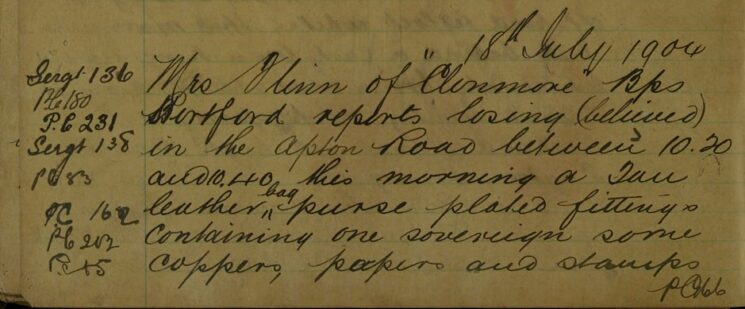 18th July 1904
Sergt 136 Mrs Flinn of "Clonmore" Bps
PC 180
P.C 231 Stortford reports losing (believed)
Sergt 138 in the Apton Road between 10.20
PC 83 and 10.40 this morning a Tan
PC 162 leather bag purse plated fittings
PC 202 containing one sovereign some
P.C 45 coppers, papers and stamps
PC 266